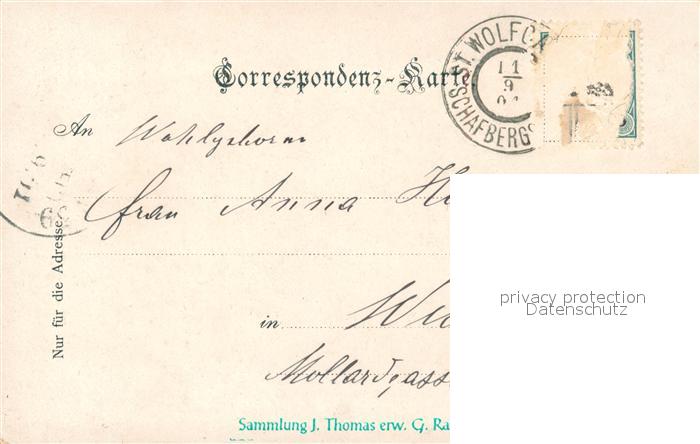 Correspondenz-Karte
ST. WOLFGA
SCHAFBERGS
11
9
An Wohlgeboren
Frau Anna
Nur für die Adresse.
in
Mollardgass
privacy protection
Datenschutz
Sammlung J. Thomas erw. G. Ra